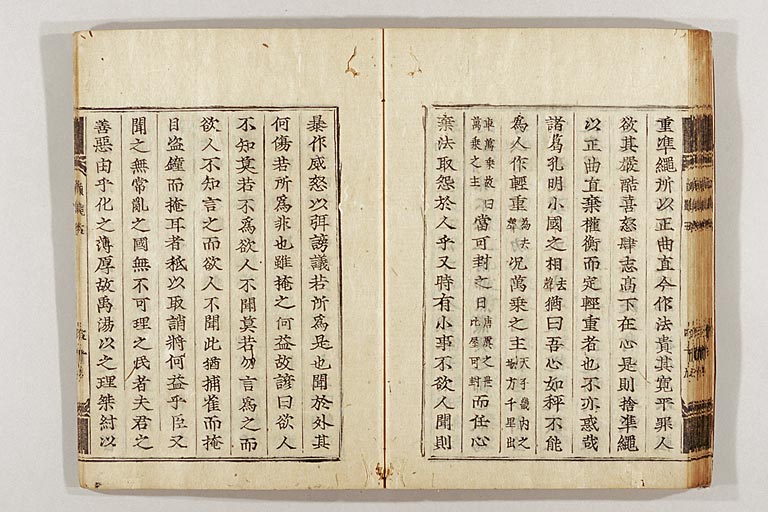 重準繩所以正曲直今作法貴其寬平罪人
欲其嚴酷喜怒肆志高下在心是則捨準繩
以正曲直棄權衡而定輕重者也不亦惑哉
諸葛孔明小國之相去聲猶曰吾心如秤不能
為人作輕重為去聲況萬乘之主天子畿內之地方千里出
車萬乘故曰萬乘之主當可封之日唐虞之世比屋可封而任心
棄法取怨於人乎又時有小事不欲人聞則
暴作威怒以弭謗議若所為是也聞於外其
何傷若所為非也雖掩之何益故諺曰欲人
不知莫若不為欲人不聞莫若勿言為之而
欲人不知言之而欲人不聞此猶捕雀而掩
目盜鐘而掩耳者秪以取誚將何益乎臣又
聞之無常亂之國無不可理之民者夫君之
善惡由乎化之薄厚故禹湯以之理桀紂以